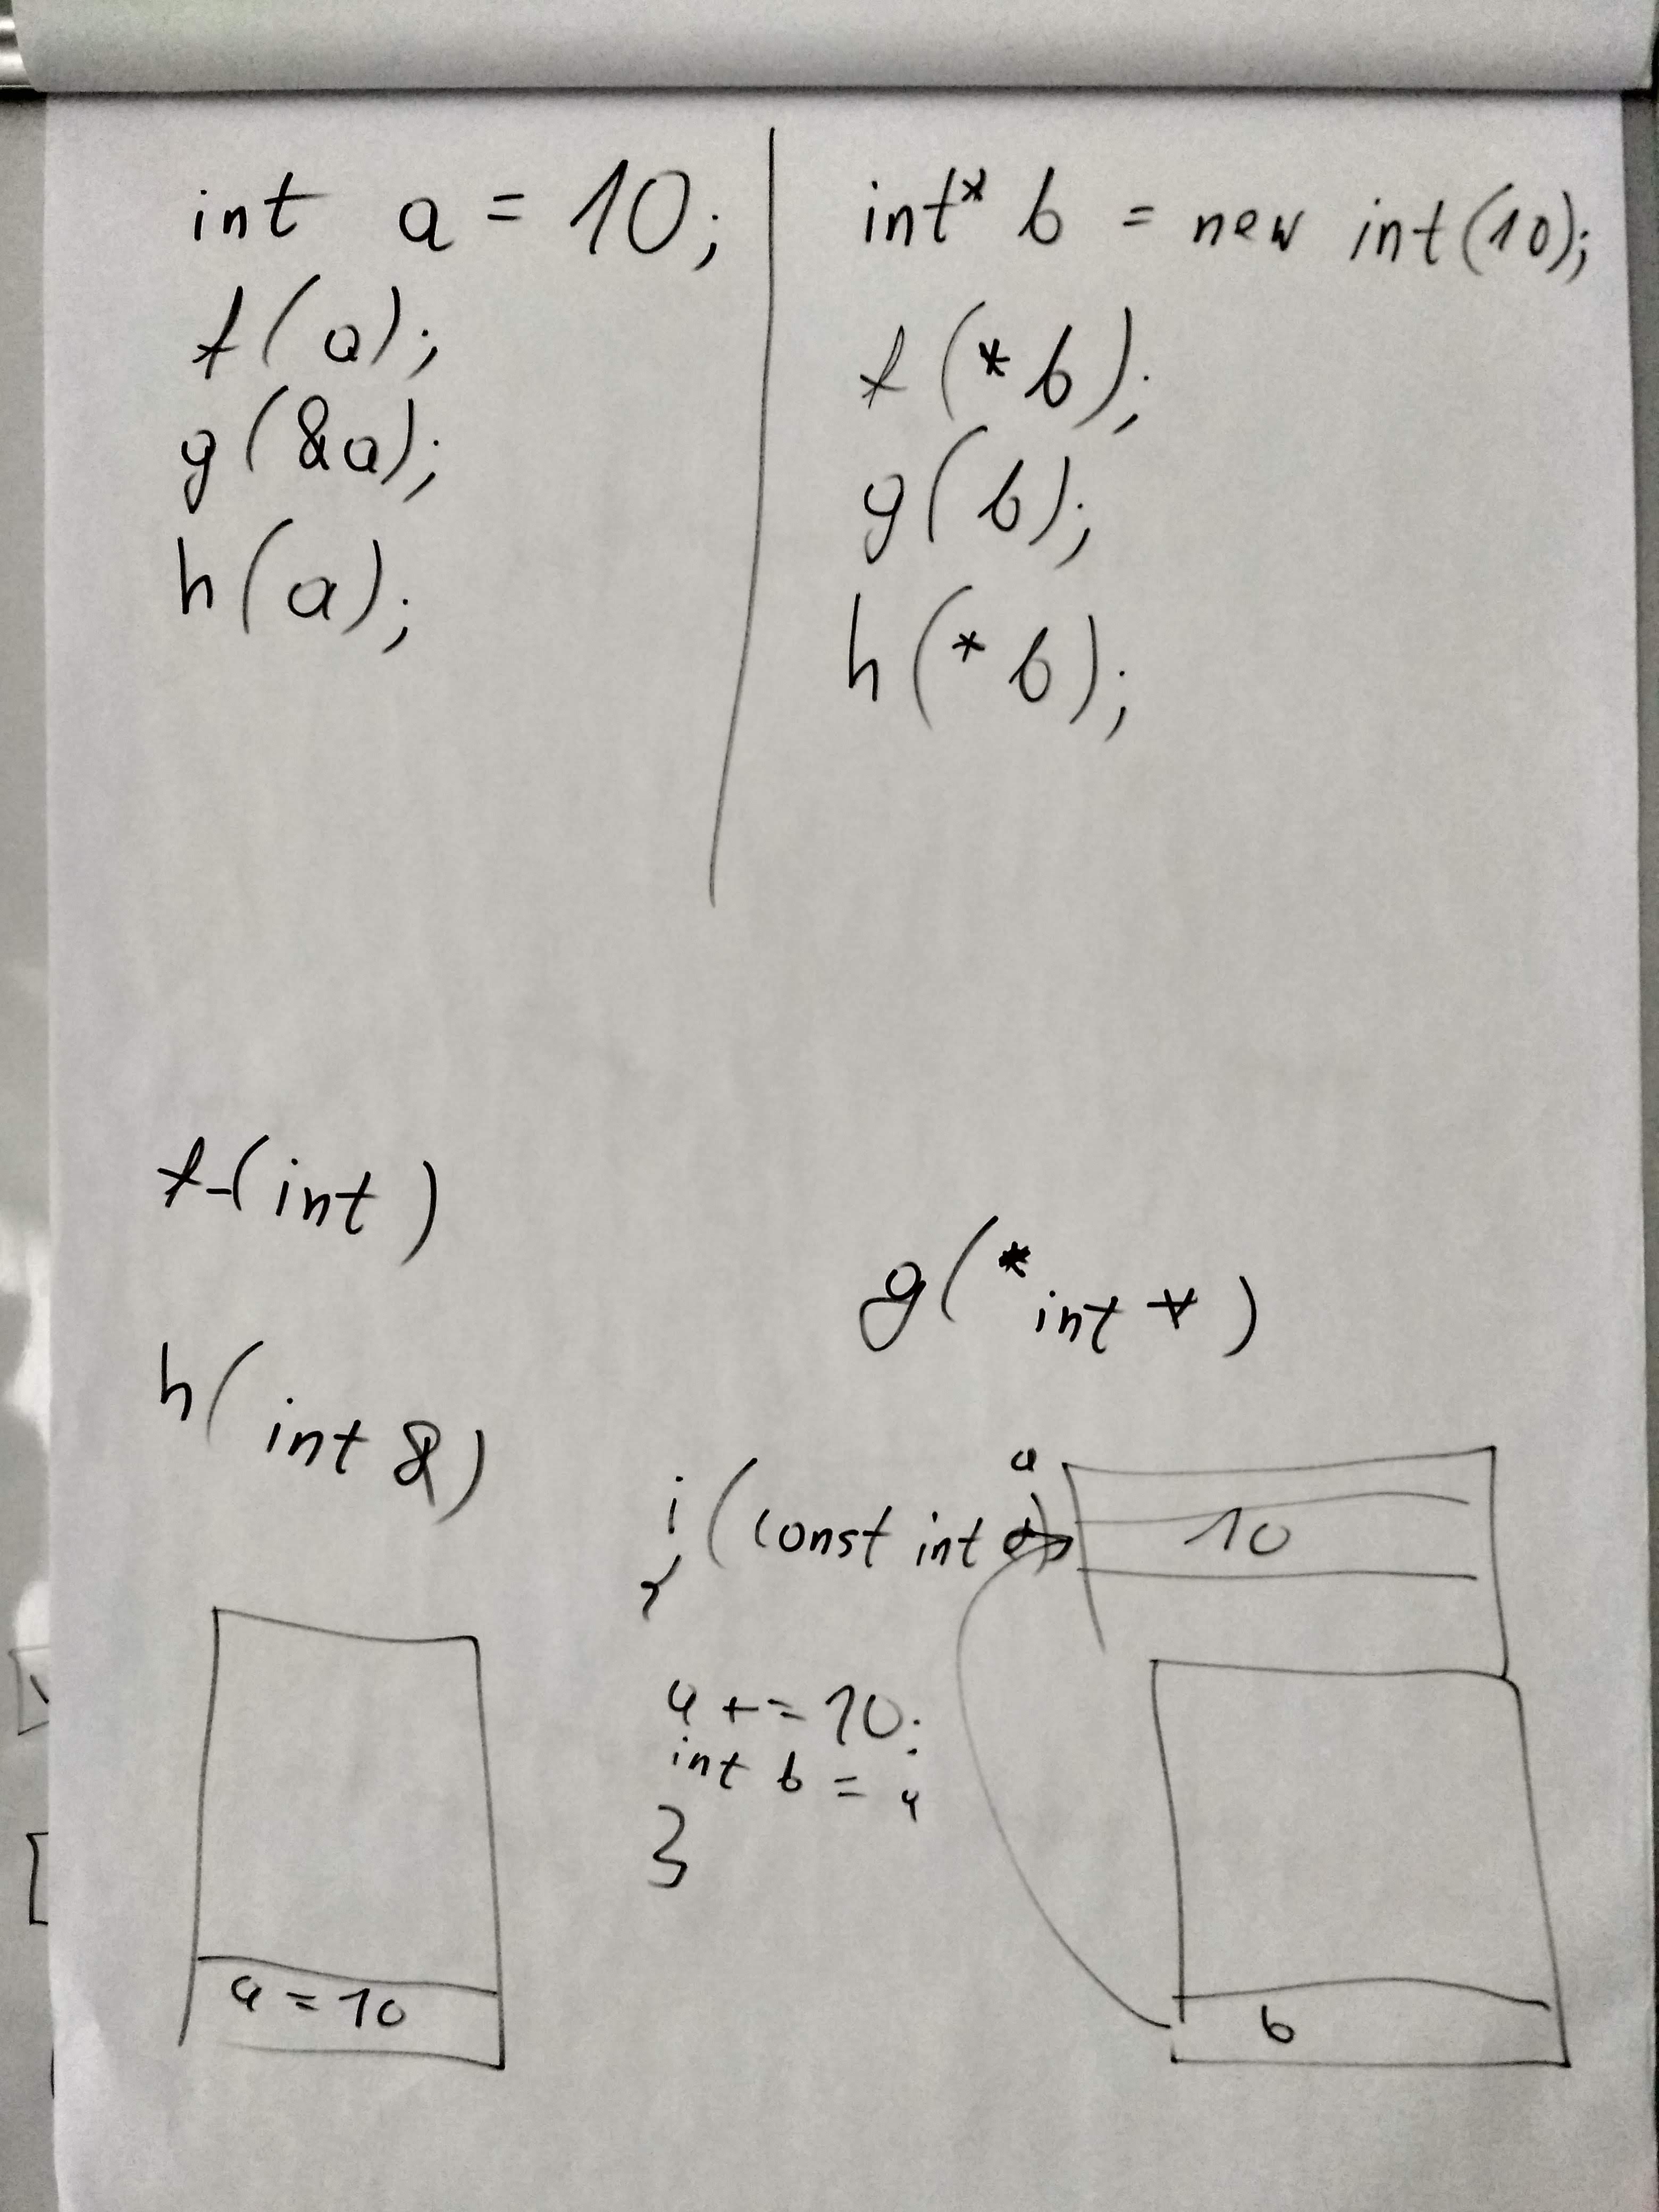 int a = 10;
f(a);
g(&a);
h(a);
int* b = new int(10);
f(*b);
g(b);
h(*b);
f(int)
g(* int *)
h(int &)
i(const int
a
10
a += 10;
int b = a
}
a = 10
b